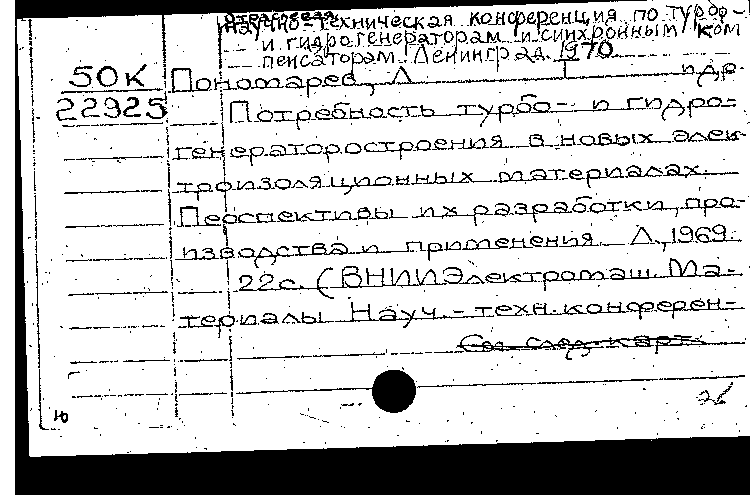 отраслевая
научно-техническая конференция по турбо-
и гидрогенераторам и синхронным ком
пенсаторам. Ленинград. 1970.
50К Пономарев, Л. и др.
22925 Потребность турбо- и гидро-
генераторостроения в новых элек
троизоляционных материалах.
Перспективы их разработки, про-
изводства и применения. Л., 1969.
22с. (ВНИИЭлектромаш. Ма-
териалы Науч.-техн. конферен-
См. след. карт.
ю